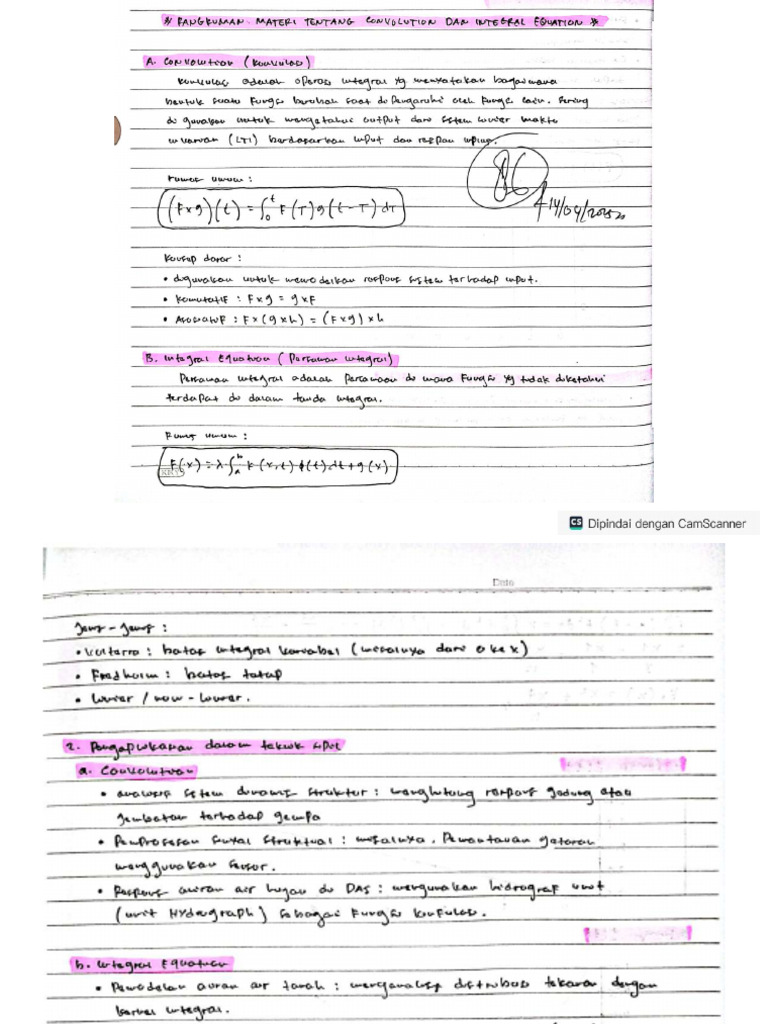 // RANGKUMAN MATERI TENTANG CONVOLUTION DAN INTEGRAL EQUATION //
A. Convolution (Konvolusi)
Konvolusi adalah operasi integral yg menyatakan bagaimana
bentuk suatu fungsi berubah saat dipengaruhi oleh fungsi lain. Sering
di gunakan untuk mengetahui output dari sistem linier waktu
invarian (LTI) berdasarkan input dan respon impuls.
86
14/04/2025
rumus umum :
(F×g)(t) = ∫₀ᵗ F(T)g(t-T)dT
Konsep dasar :
• digunakan untuk memodelkan respons sistem terhadap input.
• Komutatif : F×g = g×F
• Asosiatif : F×(g×h) = (F×g)×h
B. Integral Equation (Persamaan integral)
Persamaan integral adalah persamaan di mana fungsi yg tidak diketahui
terdapat di dalam tanda integral.
Rumus umum :
F(x) = λ∫ₐᵇ k(x,t) ϕ(t) dt + g(x)
CS Dipindai dengan CamScanner
Date
Jenis-Jenis :
• Volterra : batas integral variabel (misalnya dari 0 ke x)
• Fredholm : batas tetap
• Linier / non-linier.
2. Pengaplikasian dalam teknik sipil
a. Convolution
• analisis sistem dinamis struktur : menghitung respons gedung atau
jembatan terhadap gempa
• Pemprosesan sinyal struktural : misalnya. Pemantauan getaran
menggunakan sensor.
• Respons aliran air hujan di DAS : mengunakan hidrograf unit
(unit Hydrograph) sebagai fungsi konvolusi.
b. integral Equation
• Pemodelan aliran air tanah : menganalisis distribusi tekanan dengan
kernel integral.